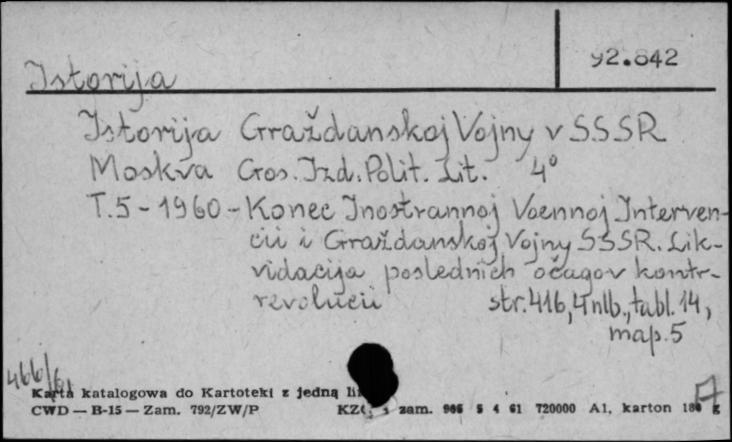 92.842
Istorija
Istorija Graždanskoj Vojny v SSSR
Moskva Gos. Izd. Polit. Lit. 4°
T.5 - 1960 - Konec Inostrannoj Voennoj Interven-
cii i Graždanskoj Vojny SSSR. Lik-
vidacija poslednich očagov kontr-
revolucii str. 416, 4 nlb., tabl. 14,
map. 5
466/61
Karta katalogowa do Kartoteki z jedną
CWD — B-15 — Zam. 792/ZW/P
zam. 5 4 61 720000 A1, karton g